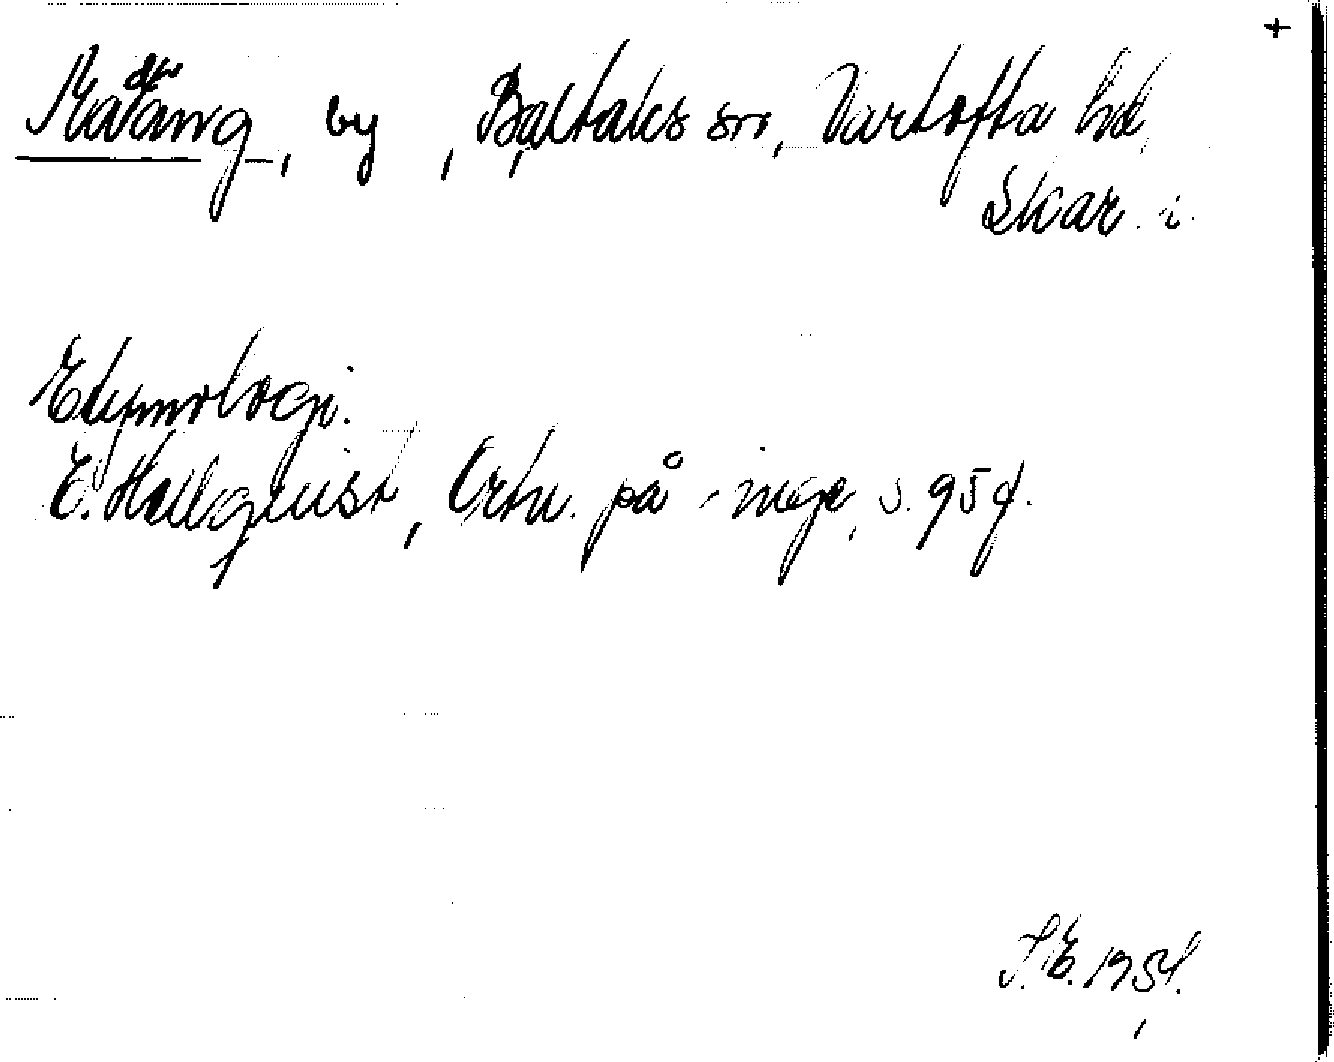 +
by, Baltaks sn, Vartofta hd,
Skar. l.
Etymologi.
E. Hellquist, Ortn. på -inge, s. 95 f.
S.E. 1951.